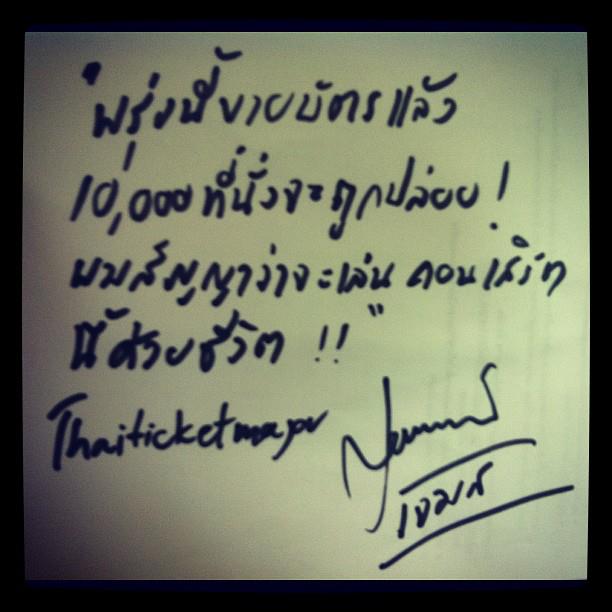 "พรุ่งนี้ขายบัตรแล้ว
10,000 ที่นั่งจะถูกปล่อย !
ผมสัญญาว่าจะเล่น คอนเสิร์ต
นี้ด้วยชีวิต !! "
Thaiticketmajor
เจมส์